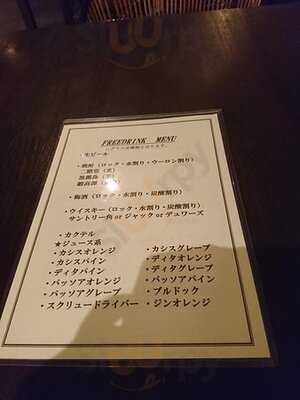 FREEDRINK MENU
・生ビール
・焼酎（ロック・水割り・ウーロン割り）
二階堂（麦）
黒霧島（芋）
・梅酒（ロック・水割り・炭酸割り）
・ウイスキー（ロック・水割り・炭酸割り）
サントリー角 or ジャック or デュワーズ
・カクテル
★ジュース系
・カシスオレンジ
・カシスグレープ
・カシスパイン
・ディタオレンジ
・ディタパイン
・ディタグレープ
・パッソアオレンジ
・パッソアパイン
・パッソアグレープ
・ブルドック
・スクリュードライバー
・ジンオレンジ